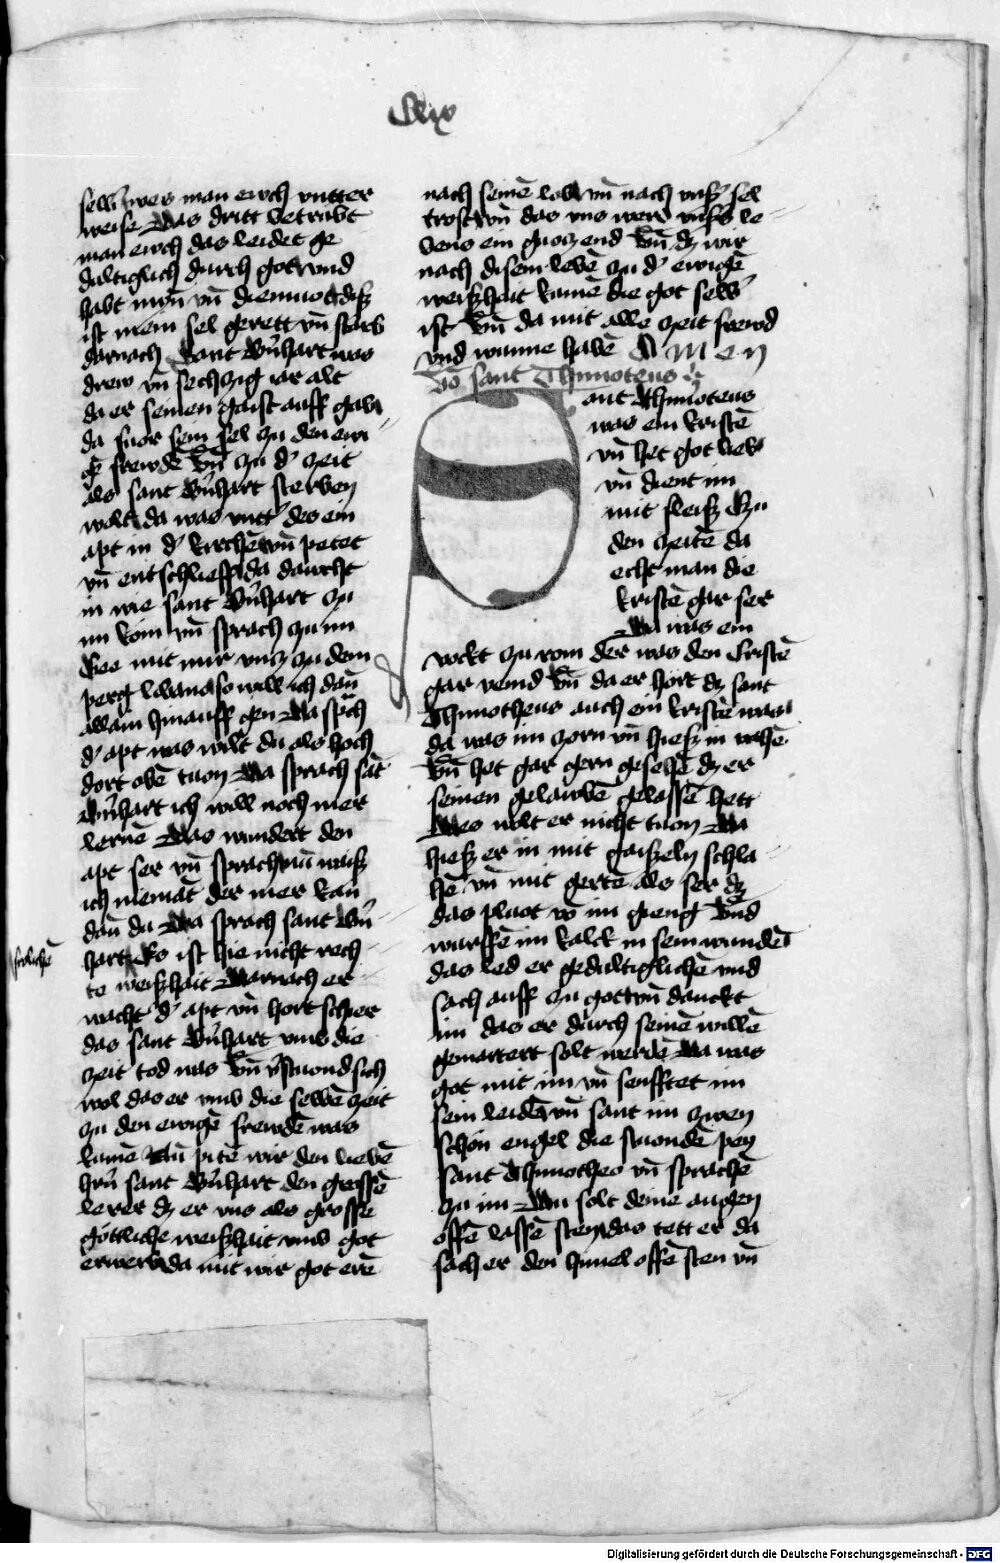 Clix
selbs wes man ewch vntter
weise Das dritt betrübt
man ewch das leidet ge
dultiglich durch got vnd
habt myn̄ vn̄ diemuot diß
ist mein sel gerett vn̄ starb
darnach Sant Bn̄hart was
drew vn̄ sechczig iar alt
da er seinen gaist auff gab
da fuor sein sel zu den ewi
gē frewdē Vn̄ zu dʼ zeit
als sant Bn̄hart sterben
wolt da was vntʼ des ein
apt in dʼ kirchē vn̄ petet
vn̄ entschlieff da daucht
in wie sant Bn̄hart zu
im kom vn̄ sprach zu im
Gee mit mir vncz zu dem
perg libani so will ich dan̄
allain hinauff gen Da spch
dʼ apt was wilt du als hoch
dort obē tuon Da sprach sāt
Bn̄hart ich will noch mer
lernē Das wundert den
apt ser vn̄ sprach nun waiß
ich niemāt der mer kan
dan̄ du Da sprach sant Bn̄
hart Es ist hie nicht rech
te weißhait Darnach er
wacht dʼ apt vn̄ hort schier
das sant Bn̄hart vmb die
zeit tod was Vn̄ vʼstuond sich
wol das er vmb die selbē zeit
zu den ewigē frewdē was
kumē Nu pitē wir den liebē
hrn̄ sant Bn̄hart den grossē
lerer dz er vns als grosse
göttliche weißhait vmb got
erwerb da mit wir got erē
frolichē
nach seinē lob vn̄ nach vnsʼ sel
trost vn̄ das vns werd vnsʼs le
bens ein guocz end Vn̄ dz wir
nach disem lebē zu dʼ ewigē
weißhait kumē die got selbʼ
ist Vn̄ da mit alle zeit frewd
vnd wunne habē Amen
Vō sant Thimoteus
ant Thimoteus
was ein kristē
vn̄ het got lieb
vn̄ dient im
mit fleiß Zu
den zeitē da
echt man die
kristē gar ser
Da was ein
vokt zu rom der was den cristē
gar veind Vn̄ da er hort dz sant
Thimotheus auch ein kristē was
da was im zorn vn̄ hieß in vahē
Vn̄ het gar gern gesehē dz er
seinen gelaubē gelassē hett
Des wolt er nicht tuon Da
hieß er in mit gaißeln schla
hē vn̄ mit gertē als ser dz
das pluot vō im gieng Vnd
wurffē im kalck in sein wundē
das led er gedultiglichē vnd
sach auff zu got vn̄ danckt
im das er durch seinē willē
gemartert solt werdē Da was
got mit im vn̄ senfftet im
sein leidē vn̄ sant im zwen
schön engel die stuondē pey
sant Thimotheo vn̄ sprachē
zu im Du solt deine augen
offē lassē sten das tett er da
sach er den himel offē sten vn̄
Digitalisierung gefördert durch die Deutsche Forschungsgemeinschaft - DFG